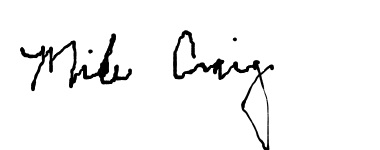 Mike Craig